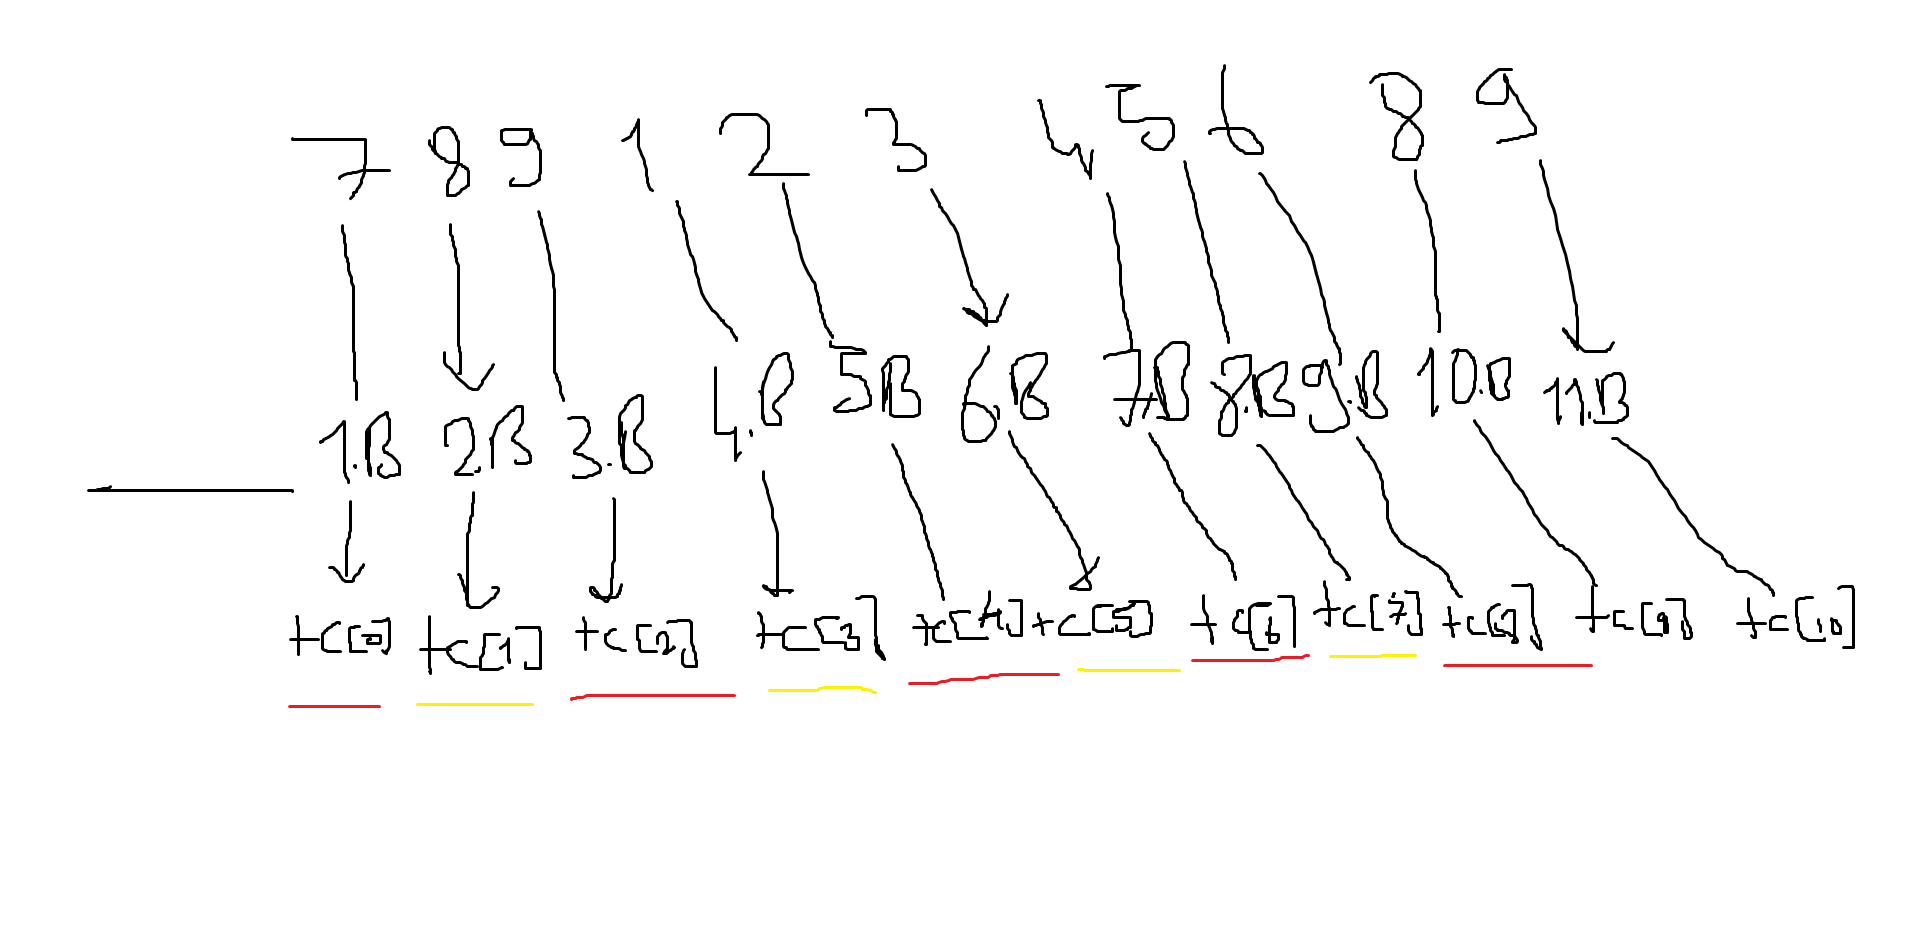 7 8 9 1 2 3 4 5 6 8 9
1.B 2.B 3.B 4.B 5B 6.B 7.B 8.B 9.B 10.B 11.B
tc[0] tc[1] tc[2] tc[3] tc[4] tc[5] tc[6] tc[7] tc[8] tc[9] tc[10]